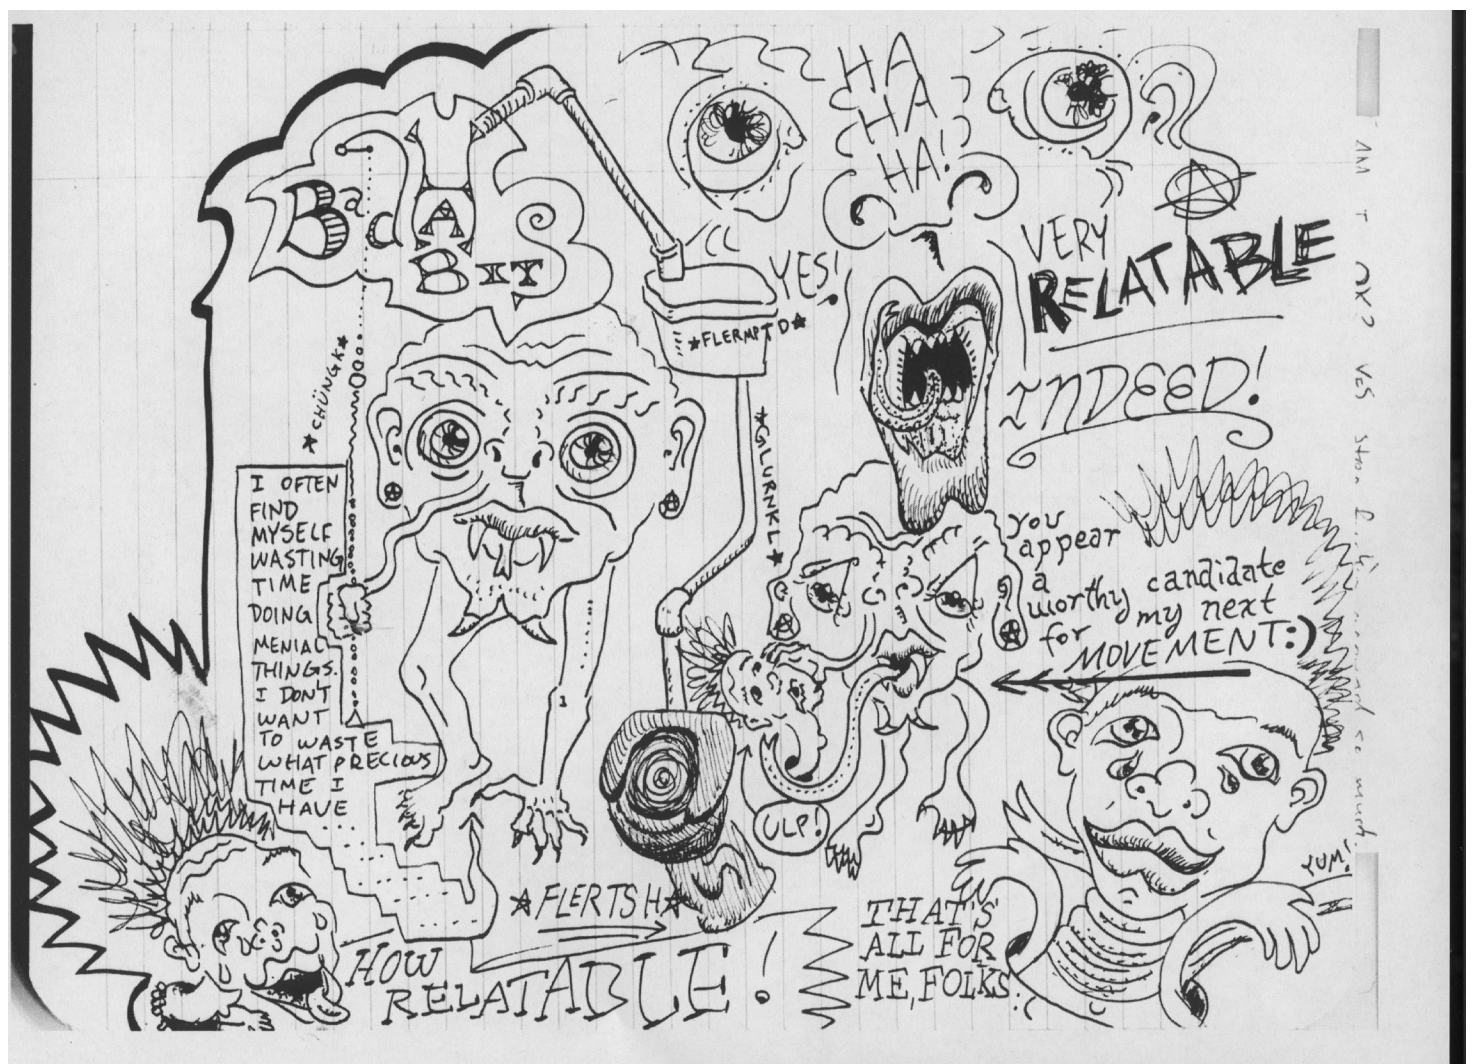 HA
HA
HA!
Bad
A
BIT
YES!
VERY
RELATABLE
INDEED!
★FLERMPTD★
★CHÜNGK★
★GLURNKL★
I OFTEN
FIND
MYSELF
WASTING
TIME
DOING
MENIAL
THINGS.
I DON'T
WANT
TO WASTE
WHAT PRECIOUS
TIME I
HAVE
you
appear
a
worthy candidate
for my next
MOVEMENT:)
ULP!
★FLERTSH★
HOW
RELATABLE!
THAT'S
ALL FOR
ME, FOLKS
YUM!
AM I OK? YES
so much